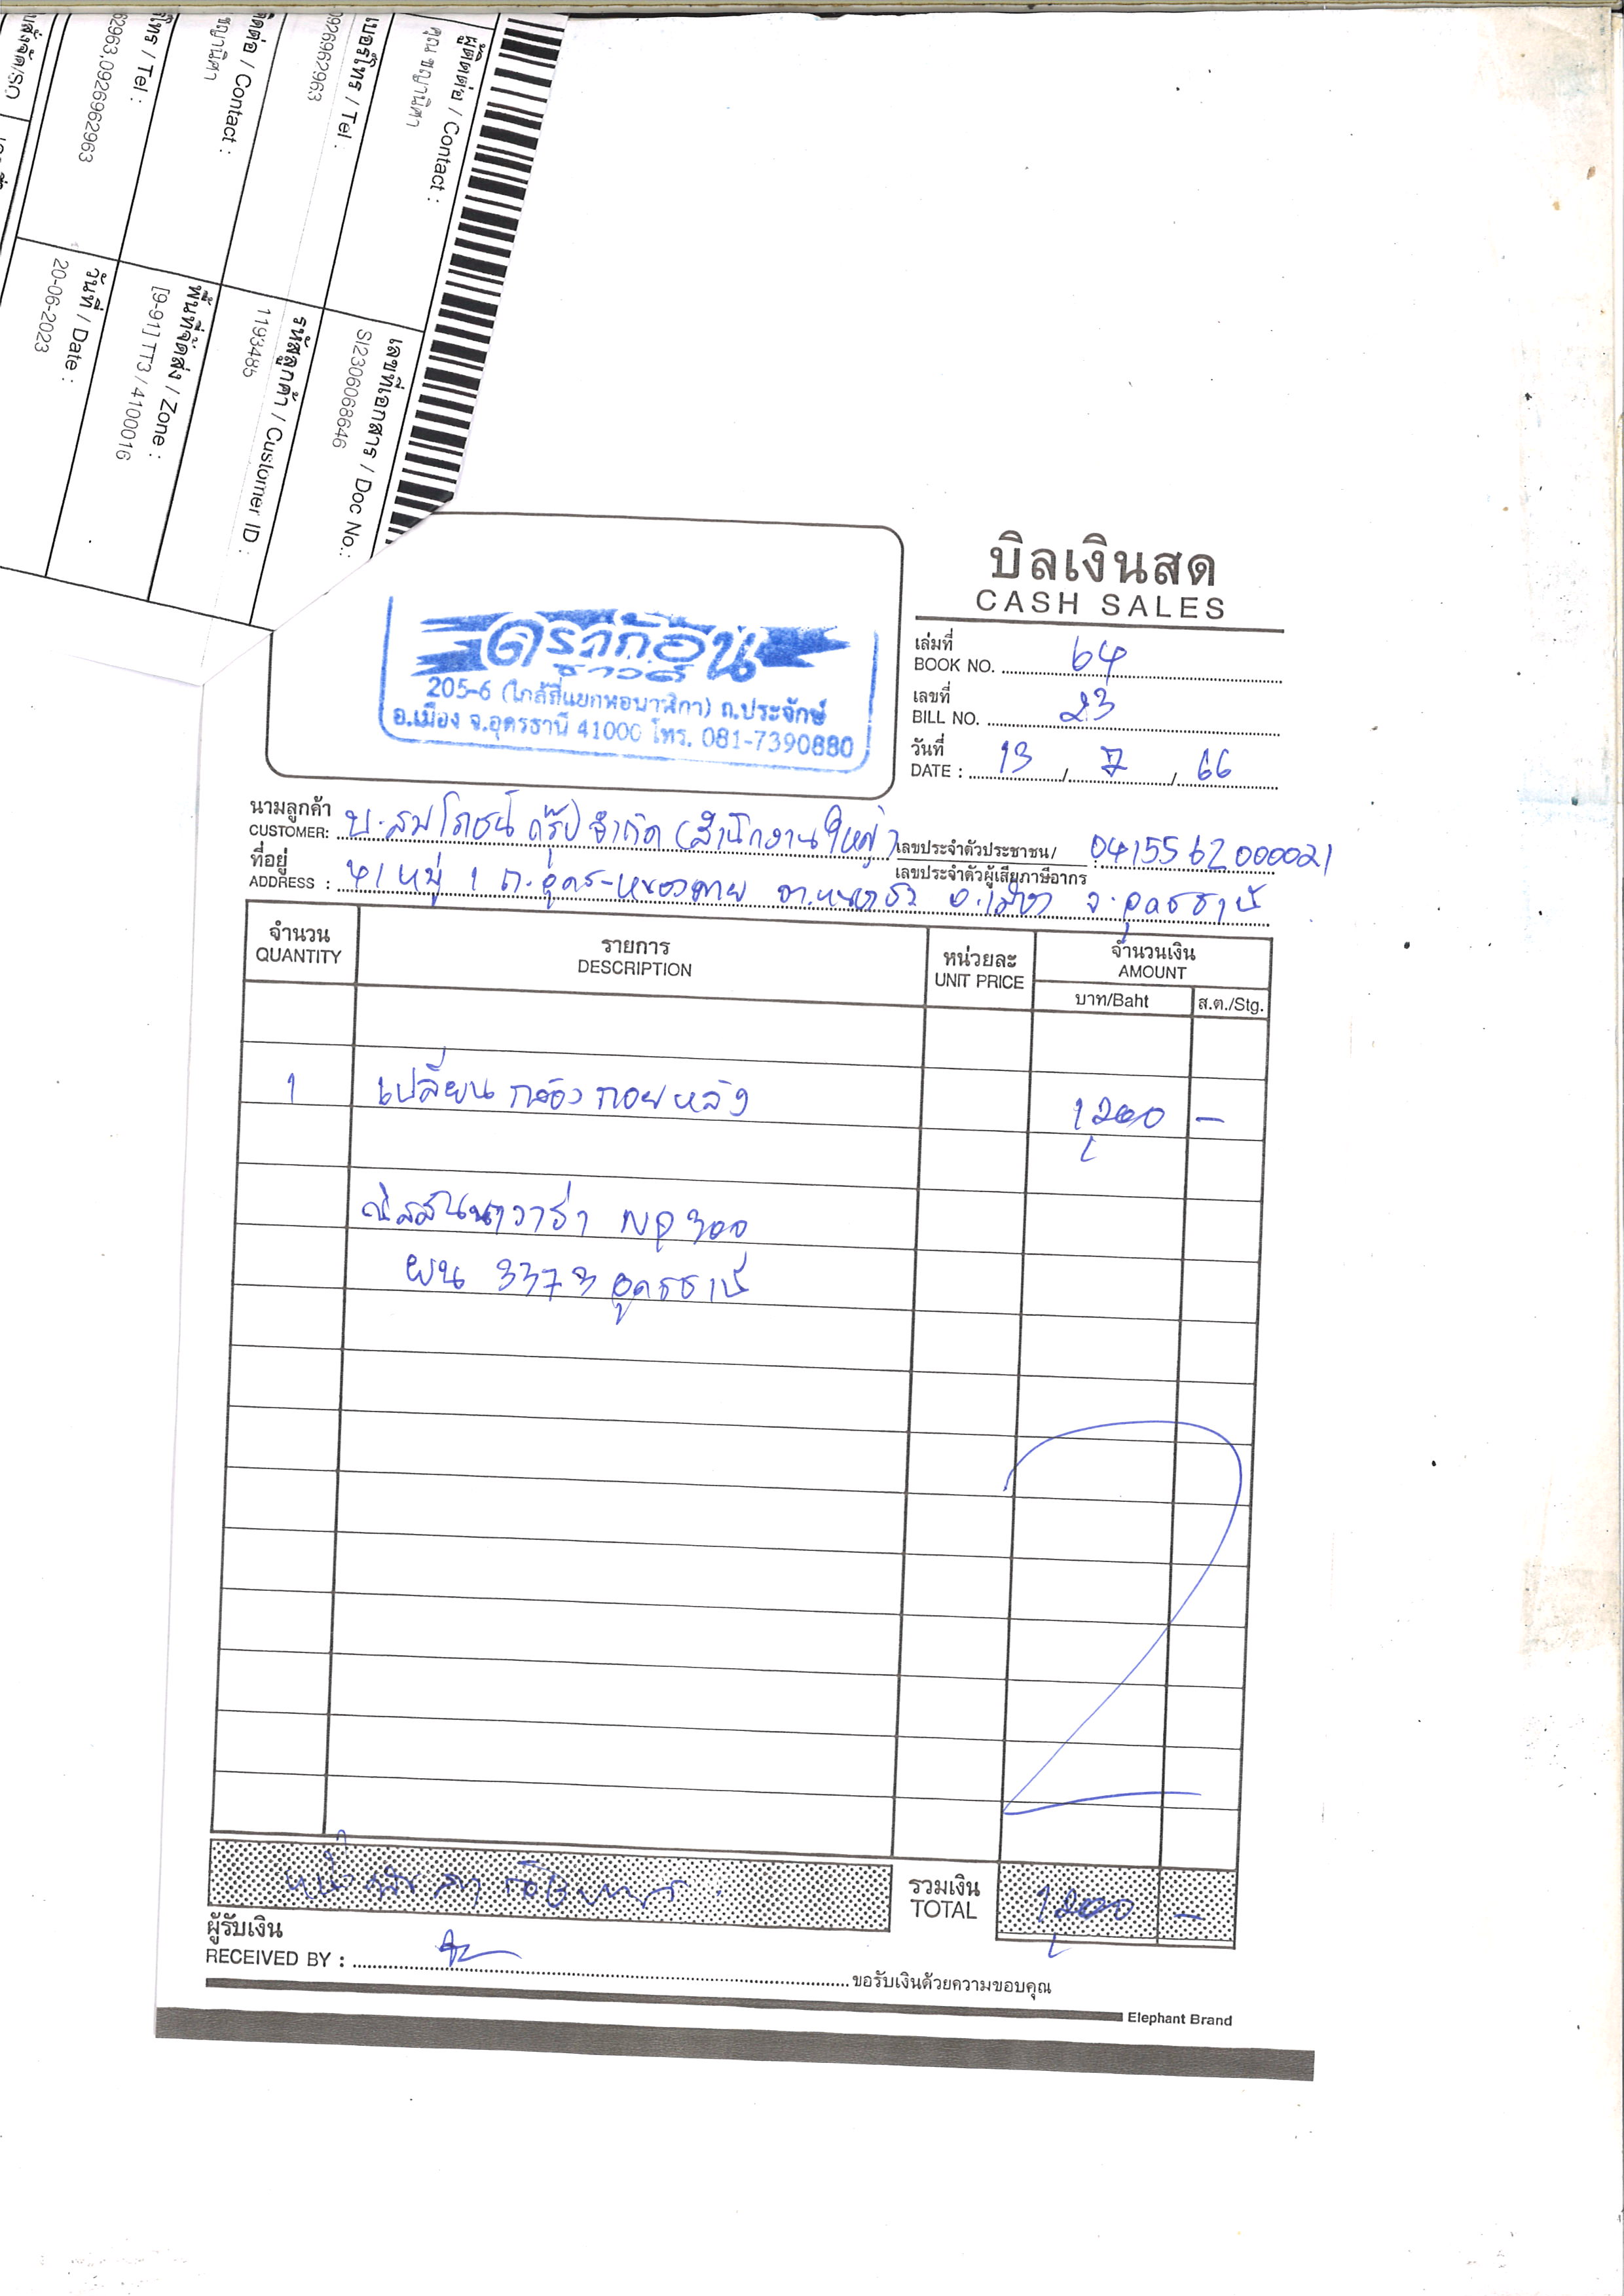 ผู้ติดต่อ / Contact :
คุณ ชญานิศา
เบอร์โทร / Tel :
0926962963
ติดต่อ / Contact :
ชญานิศา
โทร / Tel :
62963,0926962963
เลขที่เอกสาร / Doc No.:
SI2306068646
รหัสลูกค้า / Customer ID :
1193485
พื้นที่จัดส่ง / Zone :
[9-91] TT3 / 4100016
วันที่ / Date :
20-06-2023
บิลเงินสด
CASH SALES
ดราก้อน
205-6 (ใกล้สี่แยกหอนาฬิกา) ถ.ประจักษ์
อ.เมือง จ.อุดรธานี 41000 โทร. 081-7390880
เล่มที่
BOOK NO. 64
เลขที่
BILL NO. 23
วันที่
DATE : 13 / 7 / 66
นามลูกค้า
CUSTOMER: บ.สมโภชน์ กรุ๊ป จำกัด (สำนักงานใหญ่)
เลขประจำตัวประชาชน/
เลขประจำตัวผู้เสียภาษีอากร : 0415562000021
ที่อยู่
ADDRESS : 41 หมู่ 1 ถ.อุดร- จ.อุดรธานี
จำนวน รายการ หน่วยละ จำนวนเงิน
QUANTITY DESCRIPTION UNIT PRICE AMOUNT
บาท/Baht ส.ต./Stg.
1 เปลี่ยนกล้องถอยหลัง 1,200 -
นิสสันนาวาร่า NP300
ผน 3373 อุดรธานี
รวมเงิน
TOTAL 1,200 -
ผู้รับเงิน
RECEIVED BY : ขอรับเงินด้วยความขอบคุณ
Elephant Brand